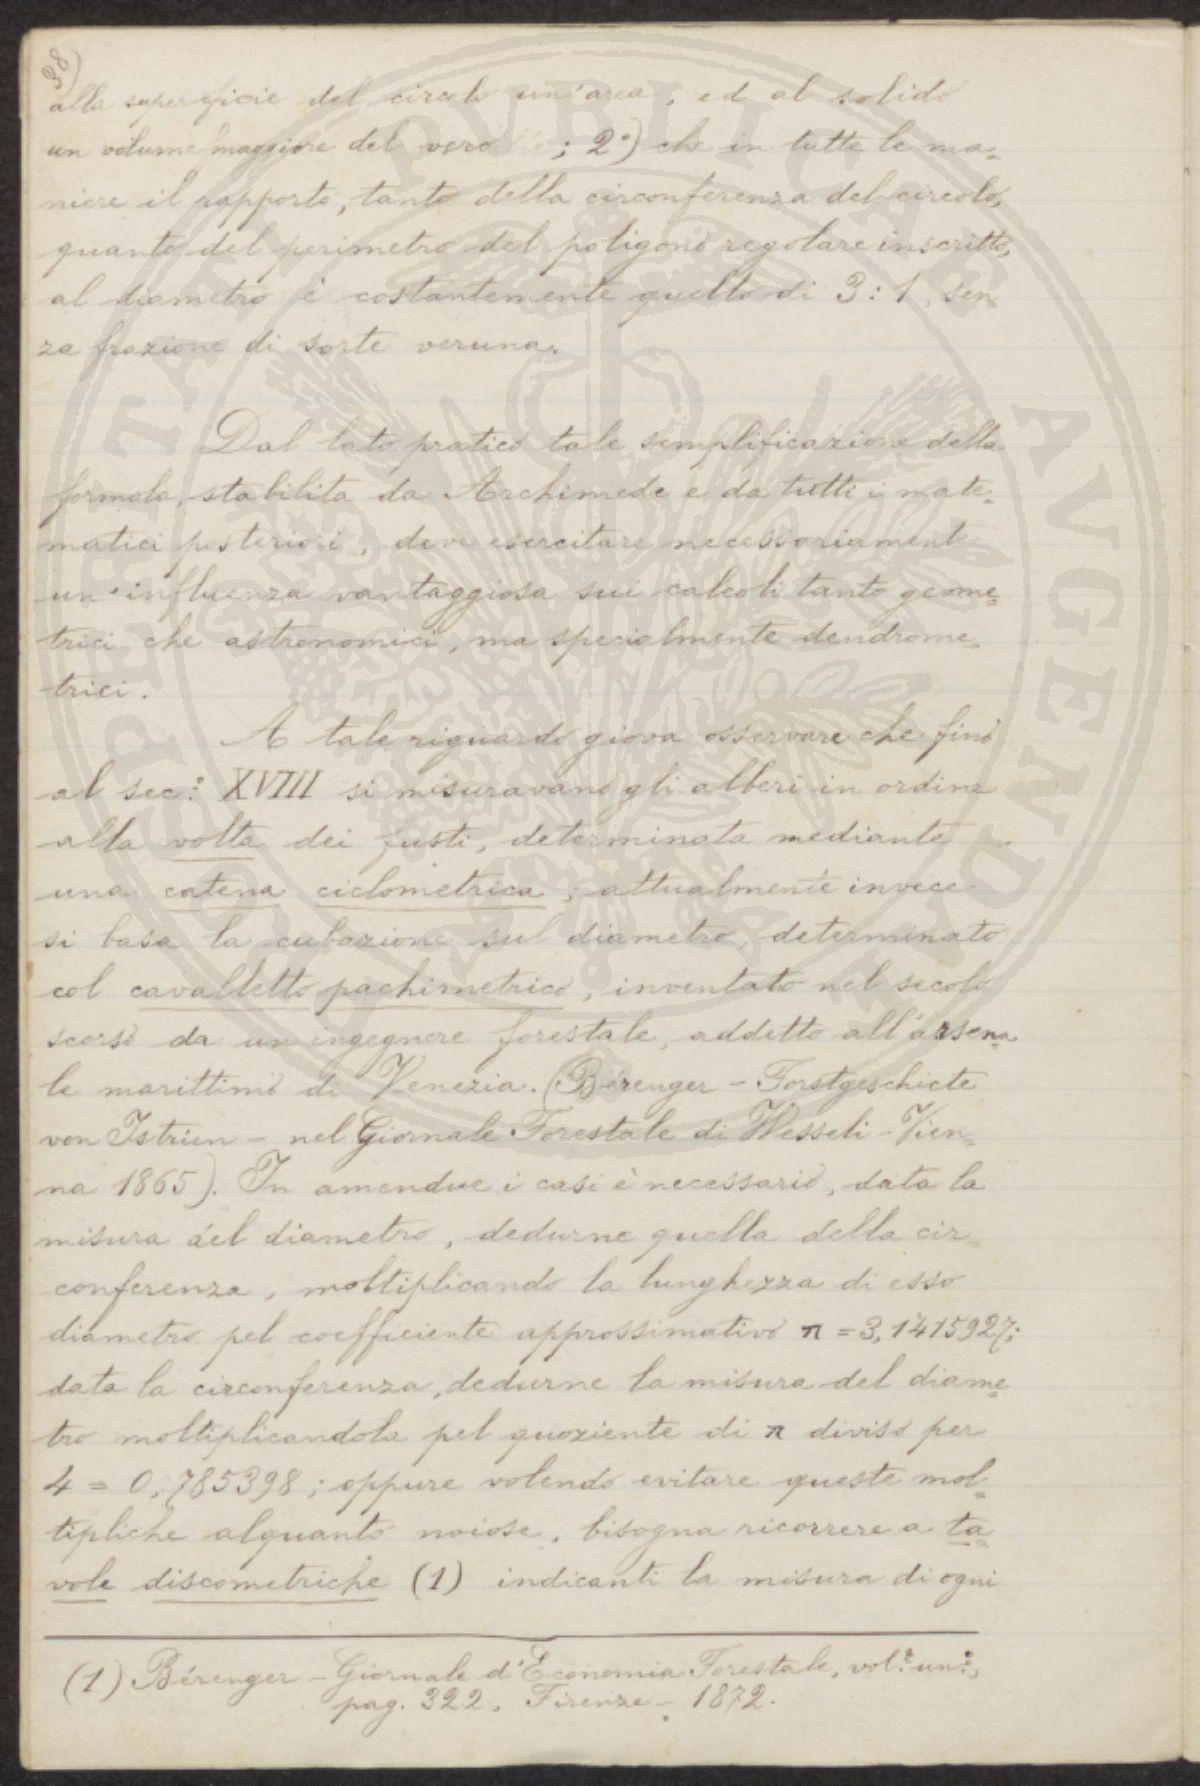 38)
alla superficie del circolo un'area, ed al solido
un volume maggiore del vero; 2°) che in tutte le ma=
niere il rapporto, tanto della circonferenza del circolo,
quanto del perimetro del poligono regolare inscritto,
al diametro è costantemente quello di 3:1, sen
za frazione di sorte veruna.
Dal lato pratico tale semplificazione della
formola, stabilita da Archimede e da tutti i mate=
matici posteriori, deve esercitare necessariamente
un'influenza vantaggiosa sui calcoli tanto geome=
trici che astronomici, ma specialmente dendrome=
trici.
A tale riguardo giova osservare che fino
al sec.° XVIII si misuravano gli alberi in ordine
alla volta dei fusti, determinata mediante
una catena ciclometrica; attualmente invece
si basa la cubazione sul diametro, determinato
col cavalletto pachimetrico, inventato nel secolo
scorso da un ingegnere forestale, addetto all'arsena=
le marittimo di Venezia. (Bérenger - Forstgeschicte
von Istrien - nel Giornale Forestale di Wesseli - Vien=
na 1865). In amendue i casi è necessario, data la
misura del diametro, dedurne quella della cir=
conferenza, moltiplicando la lunghezza di esso
diametro pel coefficiente approssimativo π = 3,1415927;
data la circonferenza, dedurne la misura del diame=
tro moltiplicandola pel quoziente di π diviso per
4 = 0,785398; oppure volendo evitare queste mol=
tipliche alquanto noiose, bisogna ricorrere a ta=
vole discometriche (1) indicanti la misura di ogni
(1) Bérenger - Giornale d'Economia Forestale, vol.e un.°,
pag. 322. Firenze - 1872.